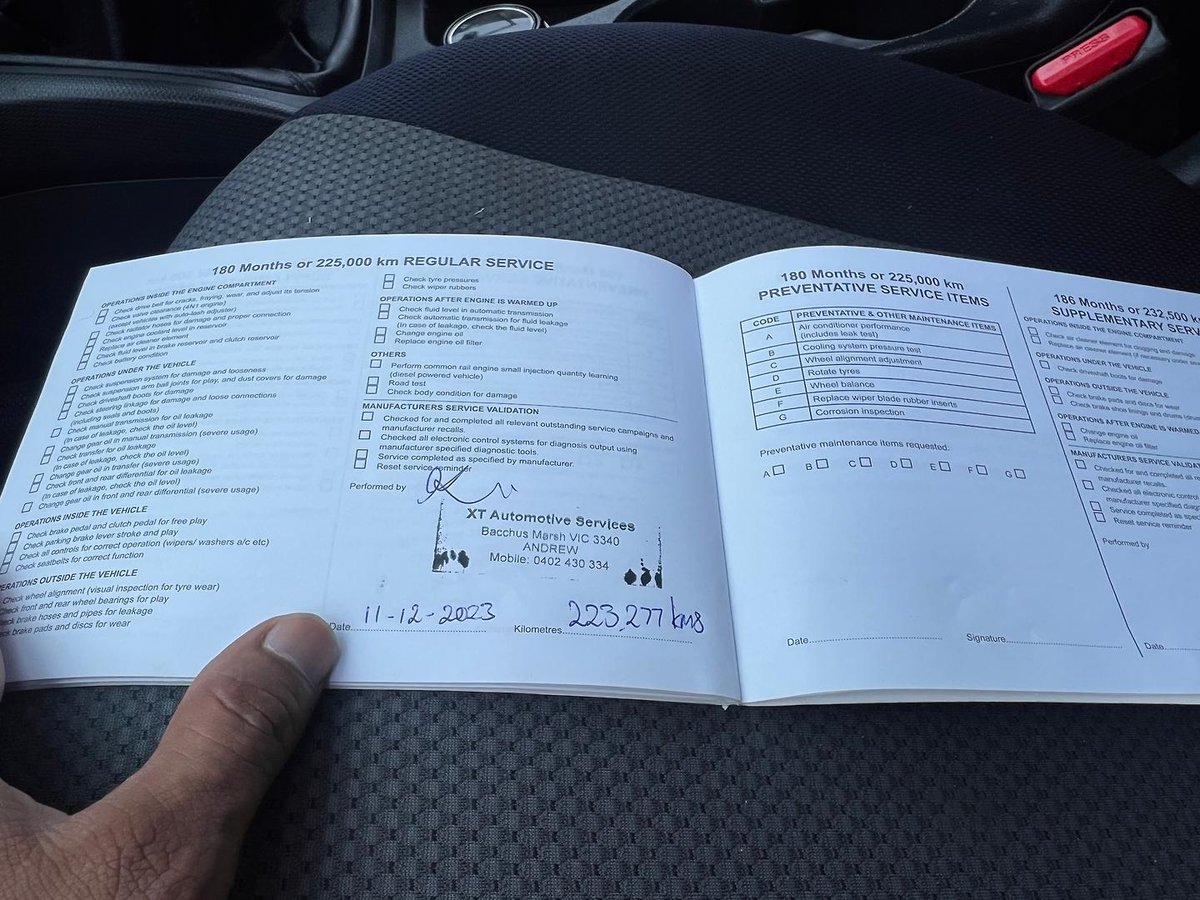 PRESS
180 Months or 225,000 km REGULAR SERVICE
OPERATIONS INSIDE THE ENGINE COMPARTMENT
Check drive belt for cracks, fraying, wear, and adjust its tension
Check valve clearance (4N1 engine)
(except vehicles with auto-lash adjuster)
Check radiator hoses for damage and proper connection
Check engine coolant level in reservoir
Replace air cleaner element
Check fluid level in brake reservoir and clutch reservoir
Check battery condition
OPERATIONS UNDER THE VEHICLE
Check suspension system for damage and looseness
Check suspension arm ball joints for play, and dust covers for damage
Check driveshaft boots for damage
Check steering linkage for damage and loose connections
(including seals and boots)
Check manual transmission for oil leakage
(In case of leakage, check the oil level)
Change gear oil in manual transmission (severe usage)
Check transfer for oil leakage
(In case of leakage, check the oil level)
Change gear oil in transfer (severe usage)
Check front and rear differential for oil leakage
(In case of leakage, check the oil level)
Change gear oil in front and rear differential (severe usage)
OPERATIONS INSIDE THE VEHICLE
Check brake pedal and clutch pedal for free play
Check parking brake lever stroke and play
Check all controls for correct operation (wipers/ washers a/c etc)
Check seatbelts for correct function
ERATIONS OUTSIDE THE VEHICLE
Check wheel alignment (visual inspection for tyre wear)
heck front and rear wheel bearings for play
heck brake hoses and pipes for leakage
eck brake pads and discs for wear
Check tyre pressures
Check wiper rubbers
OPERATIONS AFTER ENGINE IS WARMED UP
Check fluid level in automatic transmission
Check automatic transmission for fluid leakage
(In case of leakage, check the fluid level)
Change engine oil
Replace engine oil filter
OTHERS
Perform common rail engine small injection quantity learning
(diesel powered vehicle)
Road test
Check body condition for damage
MANUFACTURERS SERVICE VALIDATION
Checked for and completed all relevant outstanding service campaigns and
manufacturer recalls.
Checked all electronic control systems for diagnosis output using
manufacturer specified diagnostic tools.
Service completed as specified by manufacturer.
Reset service reminder
Performed by
XT Automotive Services
Bacchus Marsh VIC 3340
ANDREW
Mobile: 0402 430 334
Date 11-12-2023 Kilometres 223,277 kms
180 Months or 225,000 km
PREVENTATIVE SERVICE ITEMS
CODE PREVENTATIVE & OTHER MAINTENANCE ITEMS
A Air conditioner performance
(includes leak test)
B Cooling system pressure test
C Wheel alignment adjustment
D Rotate tyres
E Wheel balance
F Replace wiper blade rubber inserts
G Corrosion inspection
Preventative maintenance items requested:
A B C D E F G
Date Signature
186 Months or 232,500 k
SUPPLEMENTARY SER
OPERATIONS INSIDE THE ENGINE COMPARTMENT
OPERATIONS UNDER THE VEHICLE
Check driveshaft boots for damage
OPERATIONS OUTSIDE THE VEHICLE
Check brake pads and discs for wear
OPERATIONS AFTER ENGINE IS WARMED
Change engine oil
Replace engine oil filter
MANUFACTURERS SERVICE VALIDA
Checked for and completed all
manufacturer recalls.
Checked all electronic control
manufacturer specified diagn
Service completed as spe
Reset service reminder
Performed by
Date